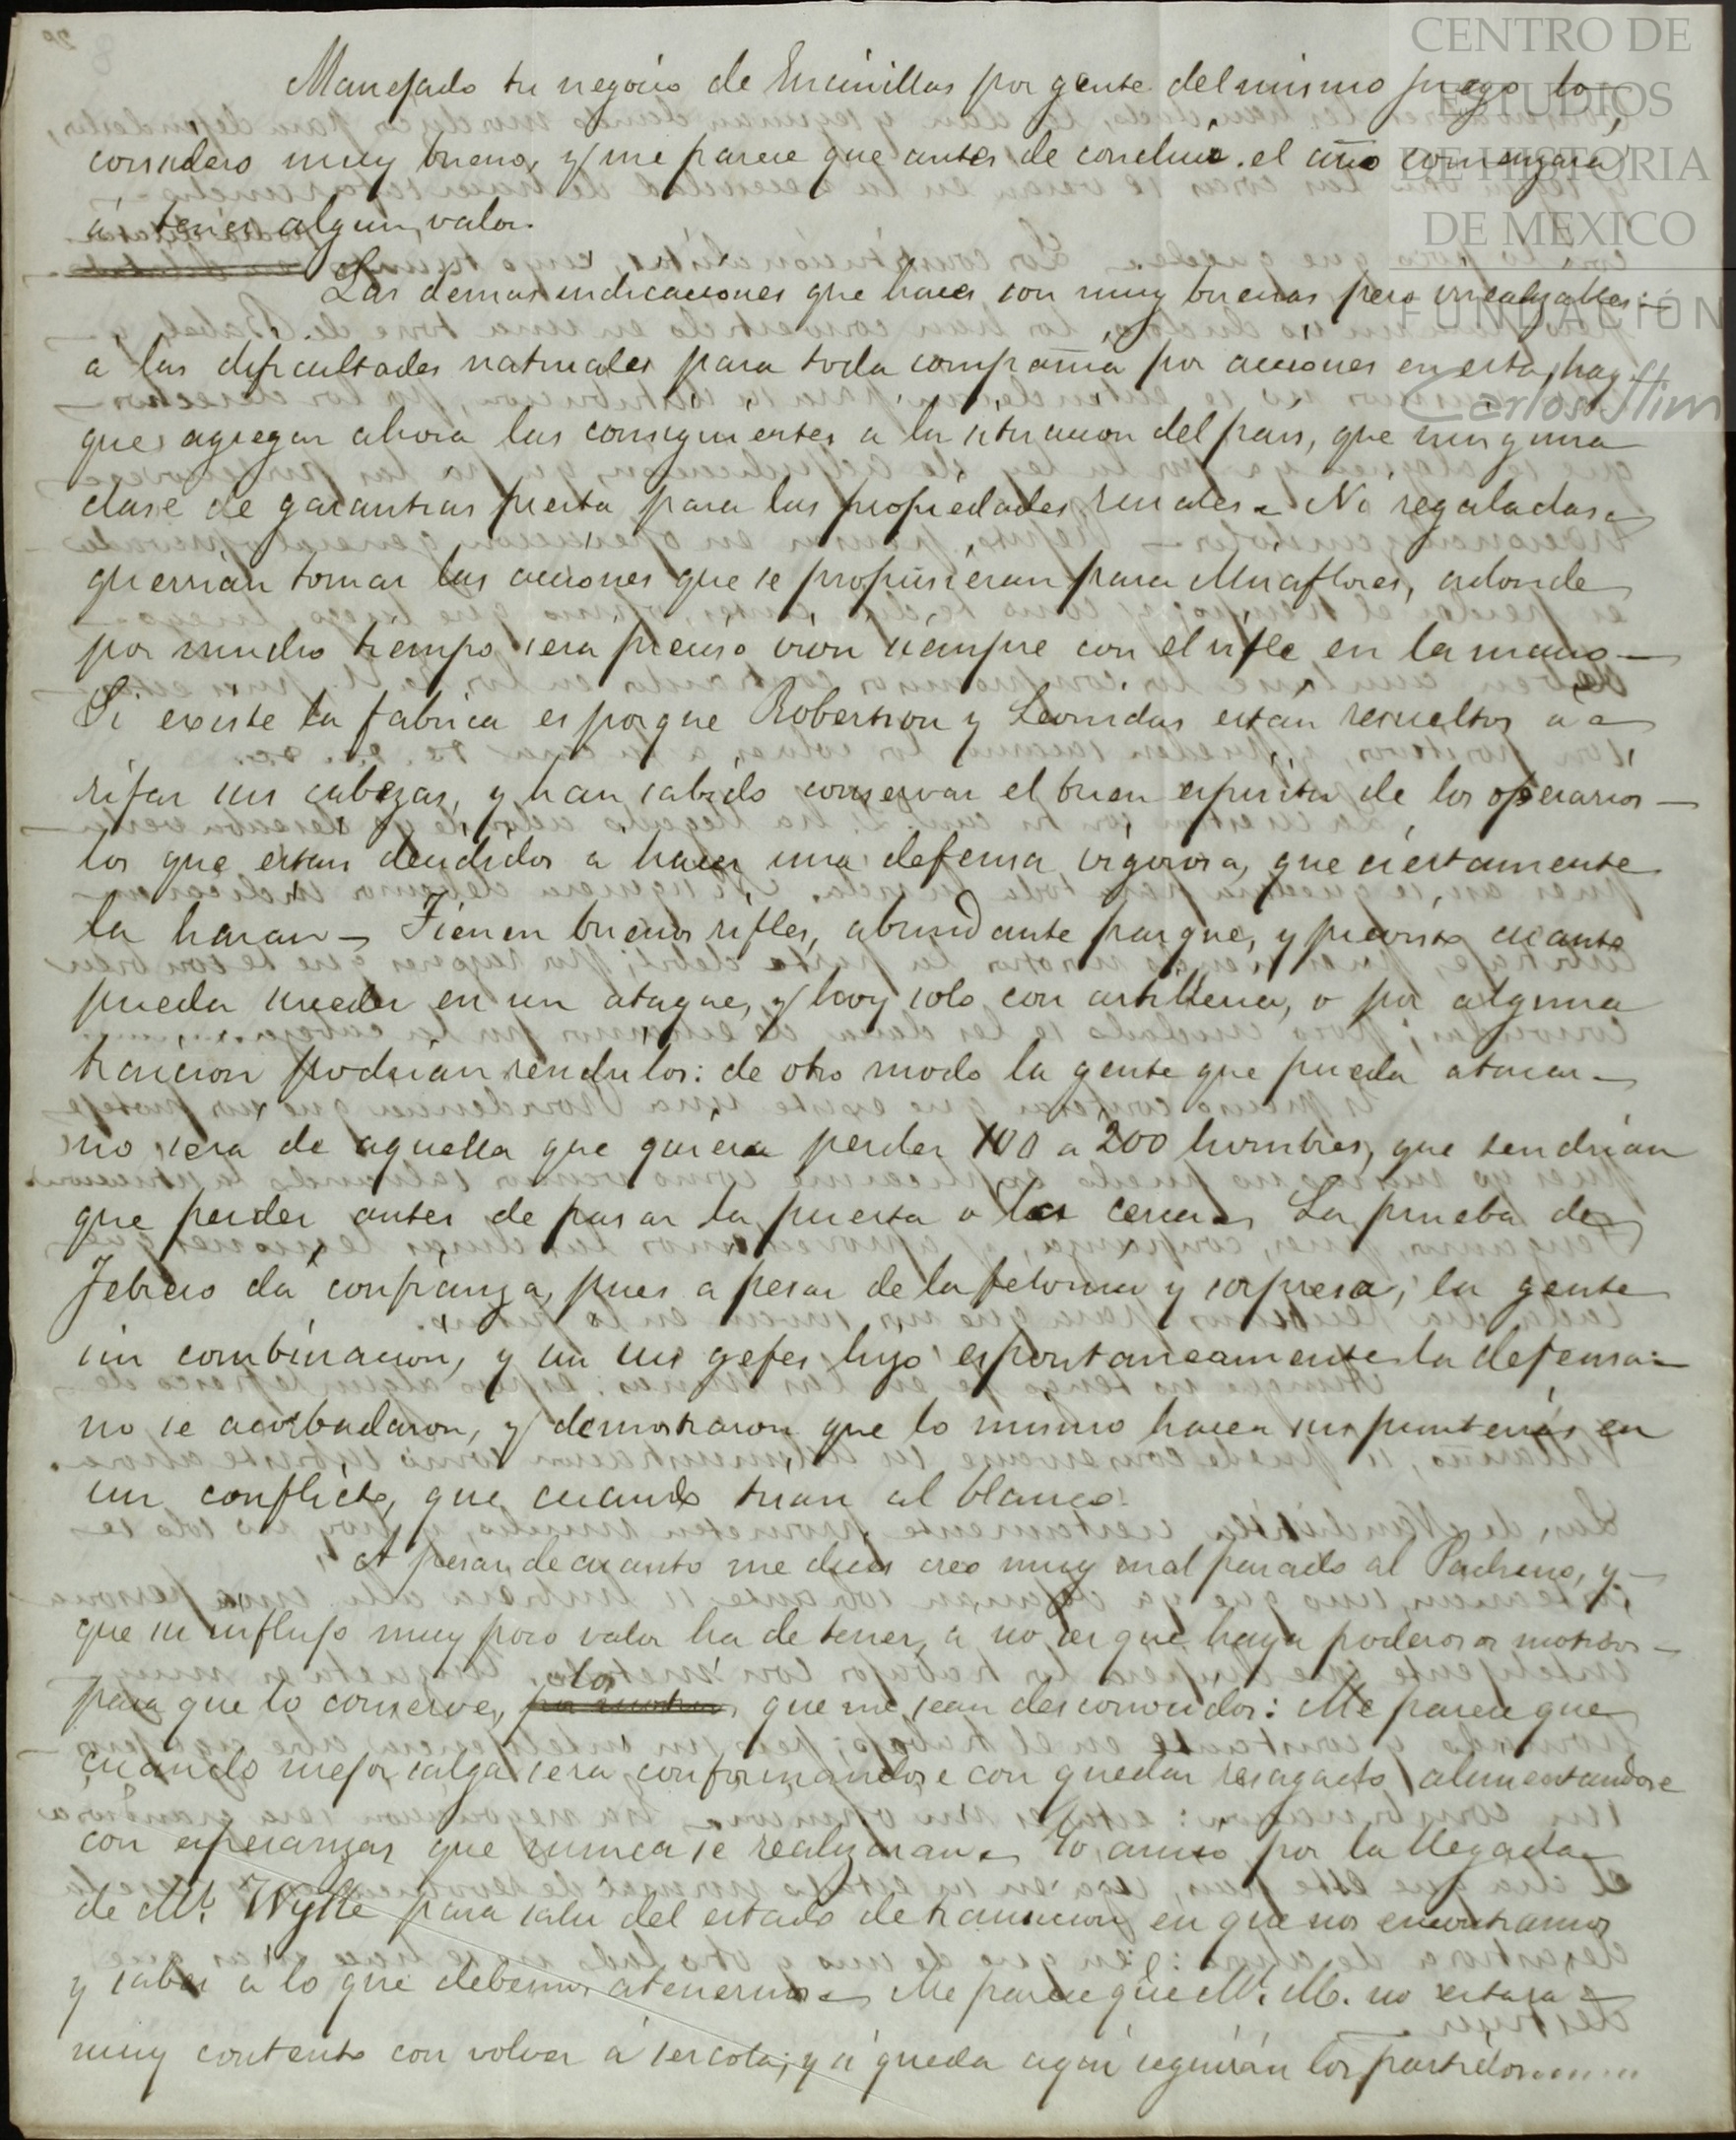 CENTRO DE
ESTUDIOS
DE HISTORIA
DE MEXICO
FUNDACIÓN
Carlos Slim
Manejado tu negocio de Encinillas por gente del mismo juego lo
considero muy bueno, y me parece que antes de concluir el año comenzará
á tener algun valor.
Las demas indicaciones que haces son muy buenas pero irrealizables:
a las dificultades naturales para toda compañia por acciones en esta, hay
que agregar ahora las consiguientes a la situacion del pais, que ninguna
clase de garantias presta para las propiedades rurales. Ni regaladas
querrian tomar las acciones que se propusieran para Miraflores, adonde
por mucho tiempo será preciso vivir siempre con el rifle en la mano—
Si existe la fabrica es porque Robertson y Leonidas están resueltos a
rifar sus cabezas, y han sabido conservar el buen espiritu de los operarios—
los que estan decididos a hacer una defensa vigorosa, que ciertamente
la haran— Tienen buenos rifles, abundante parque, y previsto cuanto
pueda suceder en un ataque, y hoy solo con artilleria, o por alguna
traicion podrian rendirlos: de otro modo la gente que pueda atacar—
no será de aquella que quiera perder 100 a 200 hombres, que tendrian
que perder antes de pasar la puerta o las cercas. La prueba de
Febrero dá confianza, pues a pesar de la felonia y sorpresa, la gente
sin combinacion, y sin sus gefes hizo espontaneamente la defensa:
no se acorbadaron, y demostraron que lo mismo hacen sus punterias en
un conflicto, que cuando tiran al blanco.
A pesar de cuanto me dices creo muy mal parado al Padrino, y—
que su influjo muy poco valor ha de tener, a no ser que haya poderosos motivos—
para que lo conserve, los que me sean desconocidos: Me parece que
cuando mejor salga sera conformandose con quedar resagado alimentandose
con esperanzas que nunca se realizaran. Yo ansio por la llegada
de Mr. Wyke para salir del estado de transicion en que nos encontramos
y saber a lo que debemos atenernos— Me parece que Mr. M. no estara—
muy contento con volver á ser cola; y si queda aqui seguirán los partidos......